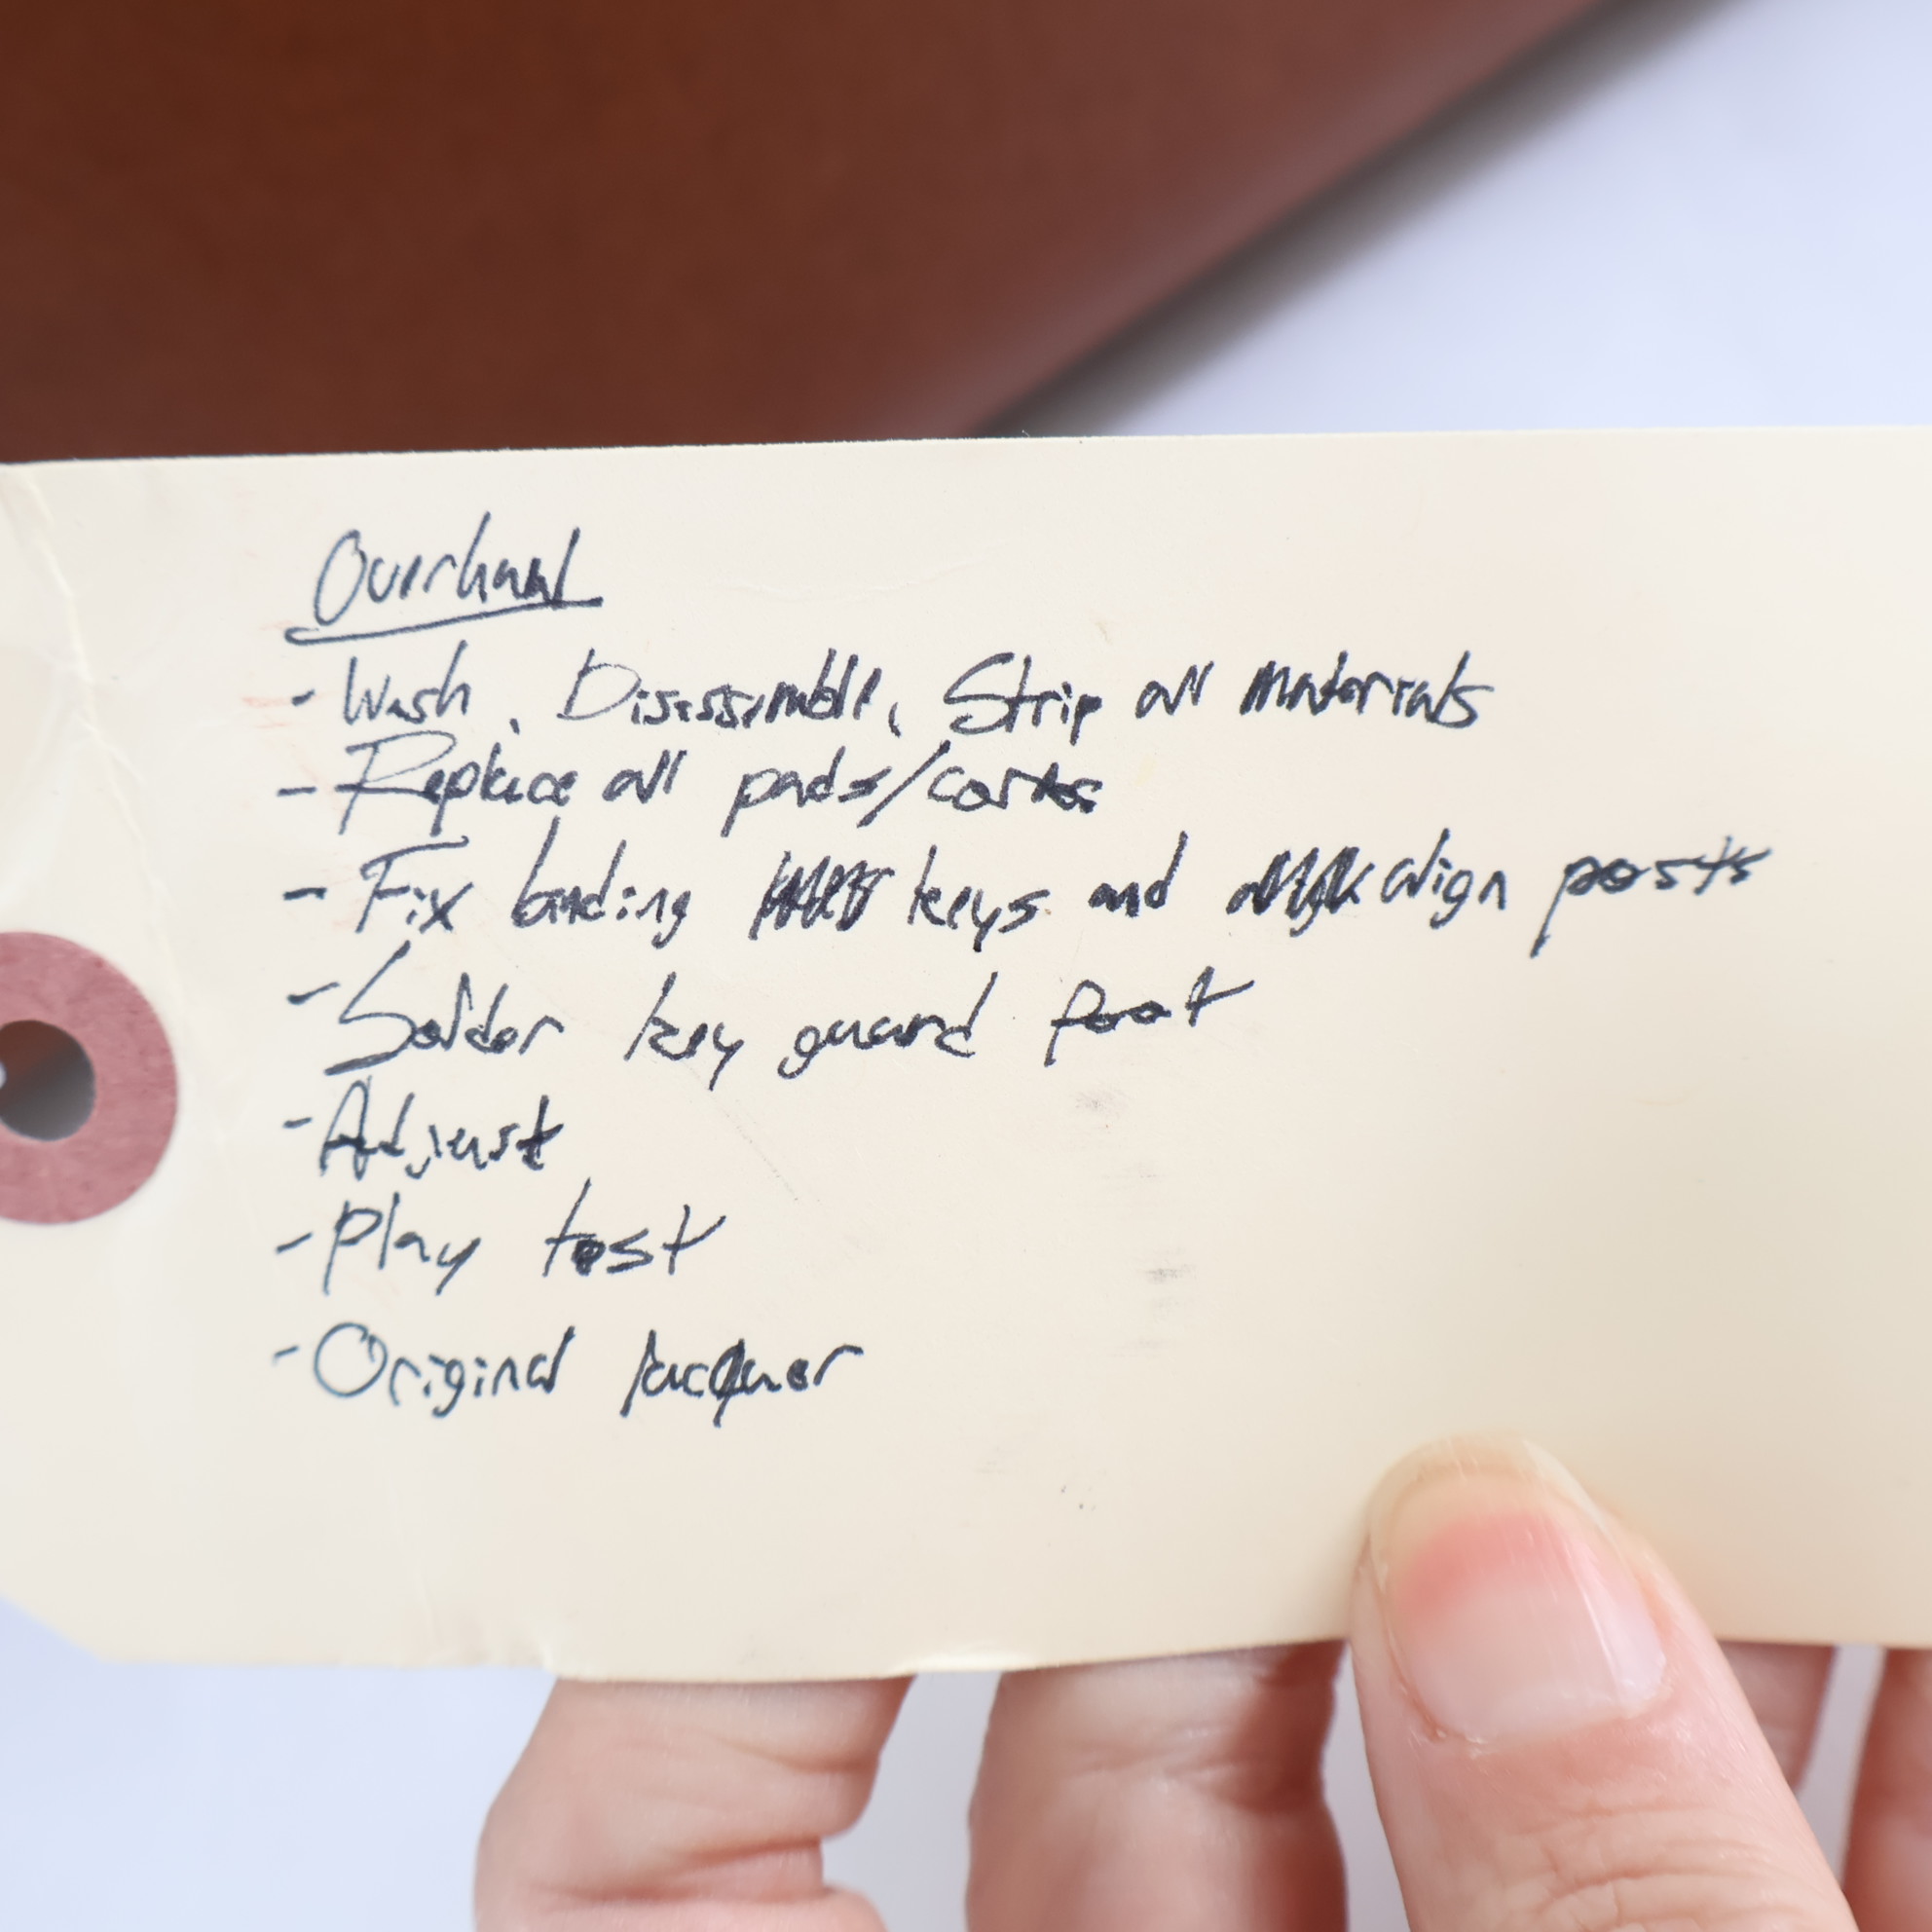 Overhaul
- Wash, Disassemble, Strip all materials
- Replace all pads/corks
- Fix binding keys and align posts
- Solder key guard foot
- Adjust
- Play test
- Original lacquer